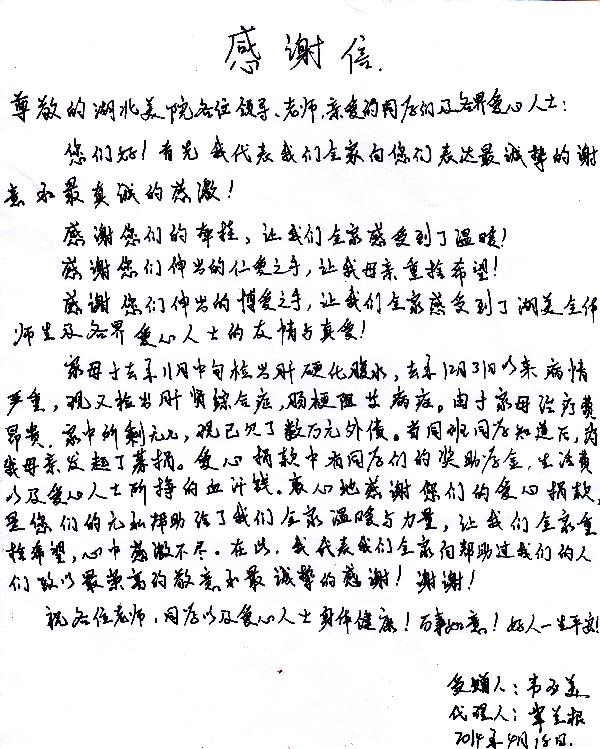 感谢信.
尊敬的湖北美院各位领导、老师,亲爱的同学们及各界爱心人士:
您们好!首先我代表我们全家向您们表达最诚挚的谢
意和最真诚的感激!
感谢您们的牵挂,让我们全家感受到了温暖!
感谢您们伸出的仁爱之手,让我母亲重拾希望!
感谢您们伸出的博爱之手,让我们全家感受到了湖美全体
师生及各界爱心人士的友情与真爱!
家母于去年11月中旬检出肝硬化腹水,去年12月31日以来病情
严重,现又检出肝肾综合症,肠梗阻等病症。由于家母治疗费
昂贵.家中所剩无几,现已欠了数万元外债。当同班同学知道后,为
我母亲发起了募捐。爱心捐款中有同学们的奖助学金,生活费
以及爱心人士所挣的血汗钱。衷心地感谢您们的爱心捐款,
是您们的无私帮助给了我们全家温暖与力量,让我们全家重
拾希望,心中感激不尽。在此.我代表我们全家向帮助过我们的人
们致以最崇高的敬意和最诚挚的感谢!谢谢!
祝各位老师,同学以及爱心人士身体健康!万事如意!好人一生平安!
受赠人:韦 美
代理人:覃兰根
2014年4月15日.